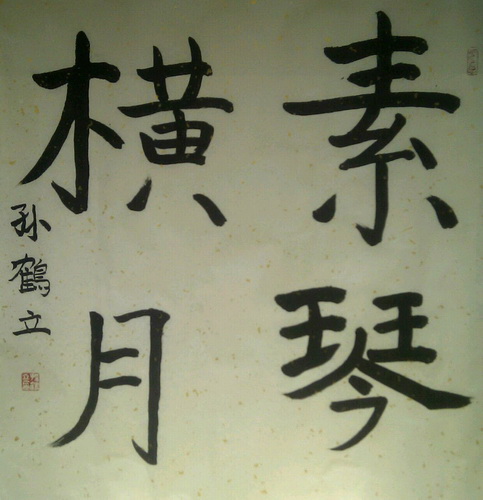 素琴
横月
孙鹤立